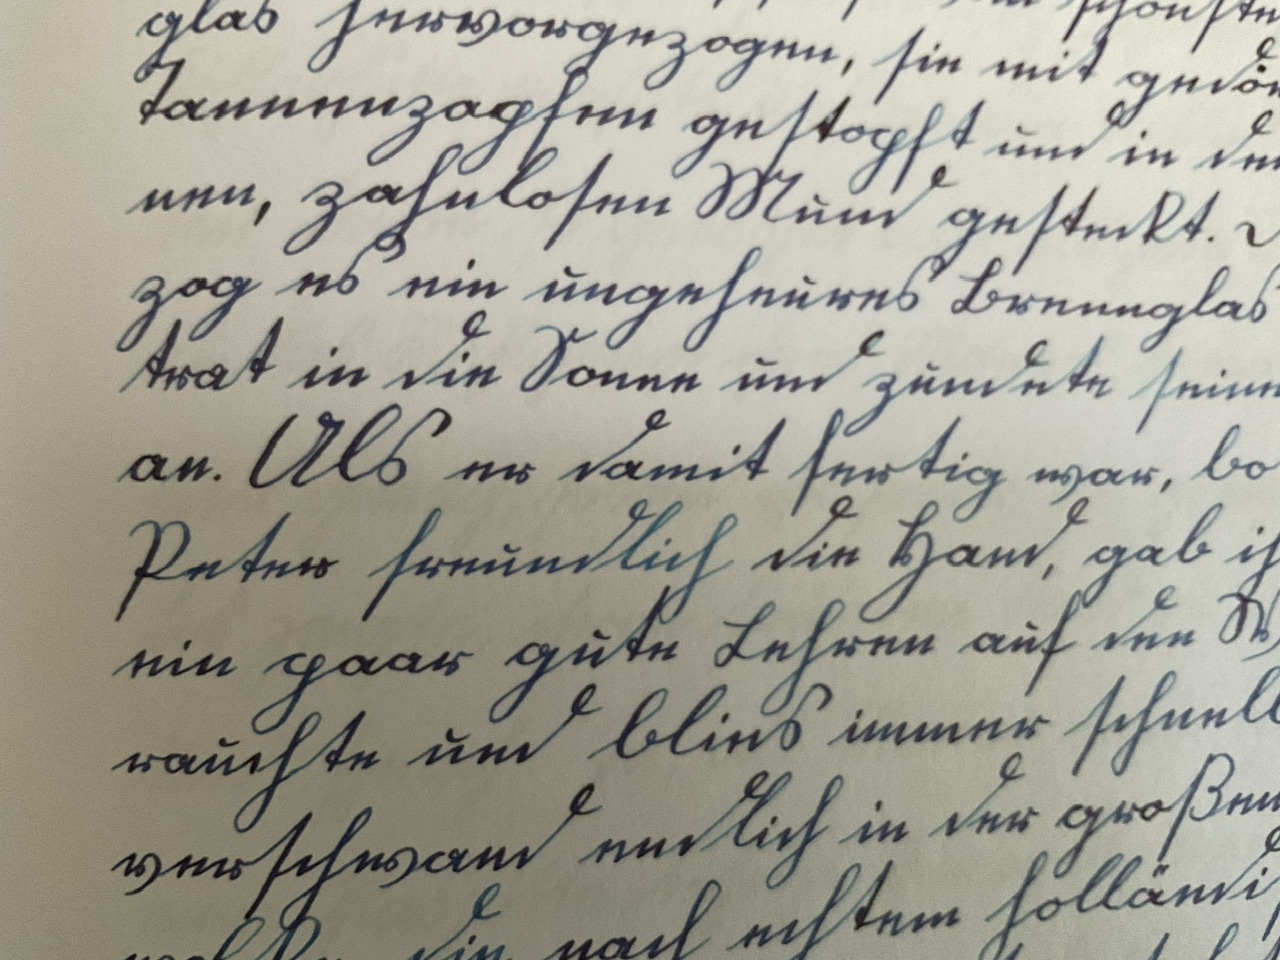 glas hervorgezogen, sie mit
Tannenzapfen gestopft und in
nen, zahnlosen Mund gesteckt.
zog es ein ungeheures Brennglas
trat in die Sonne und zündete seine
an. Als er damit fertig war, bo
Peter freundlich die Hand, gab ih
ein paar gute Lehren auf den W
rauchte und blies immer schnell
verschwand endlich in der großen
die nach echtem holländi